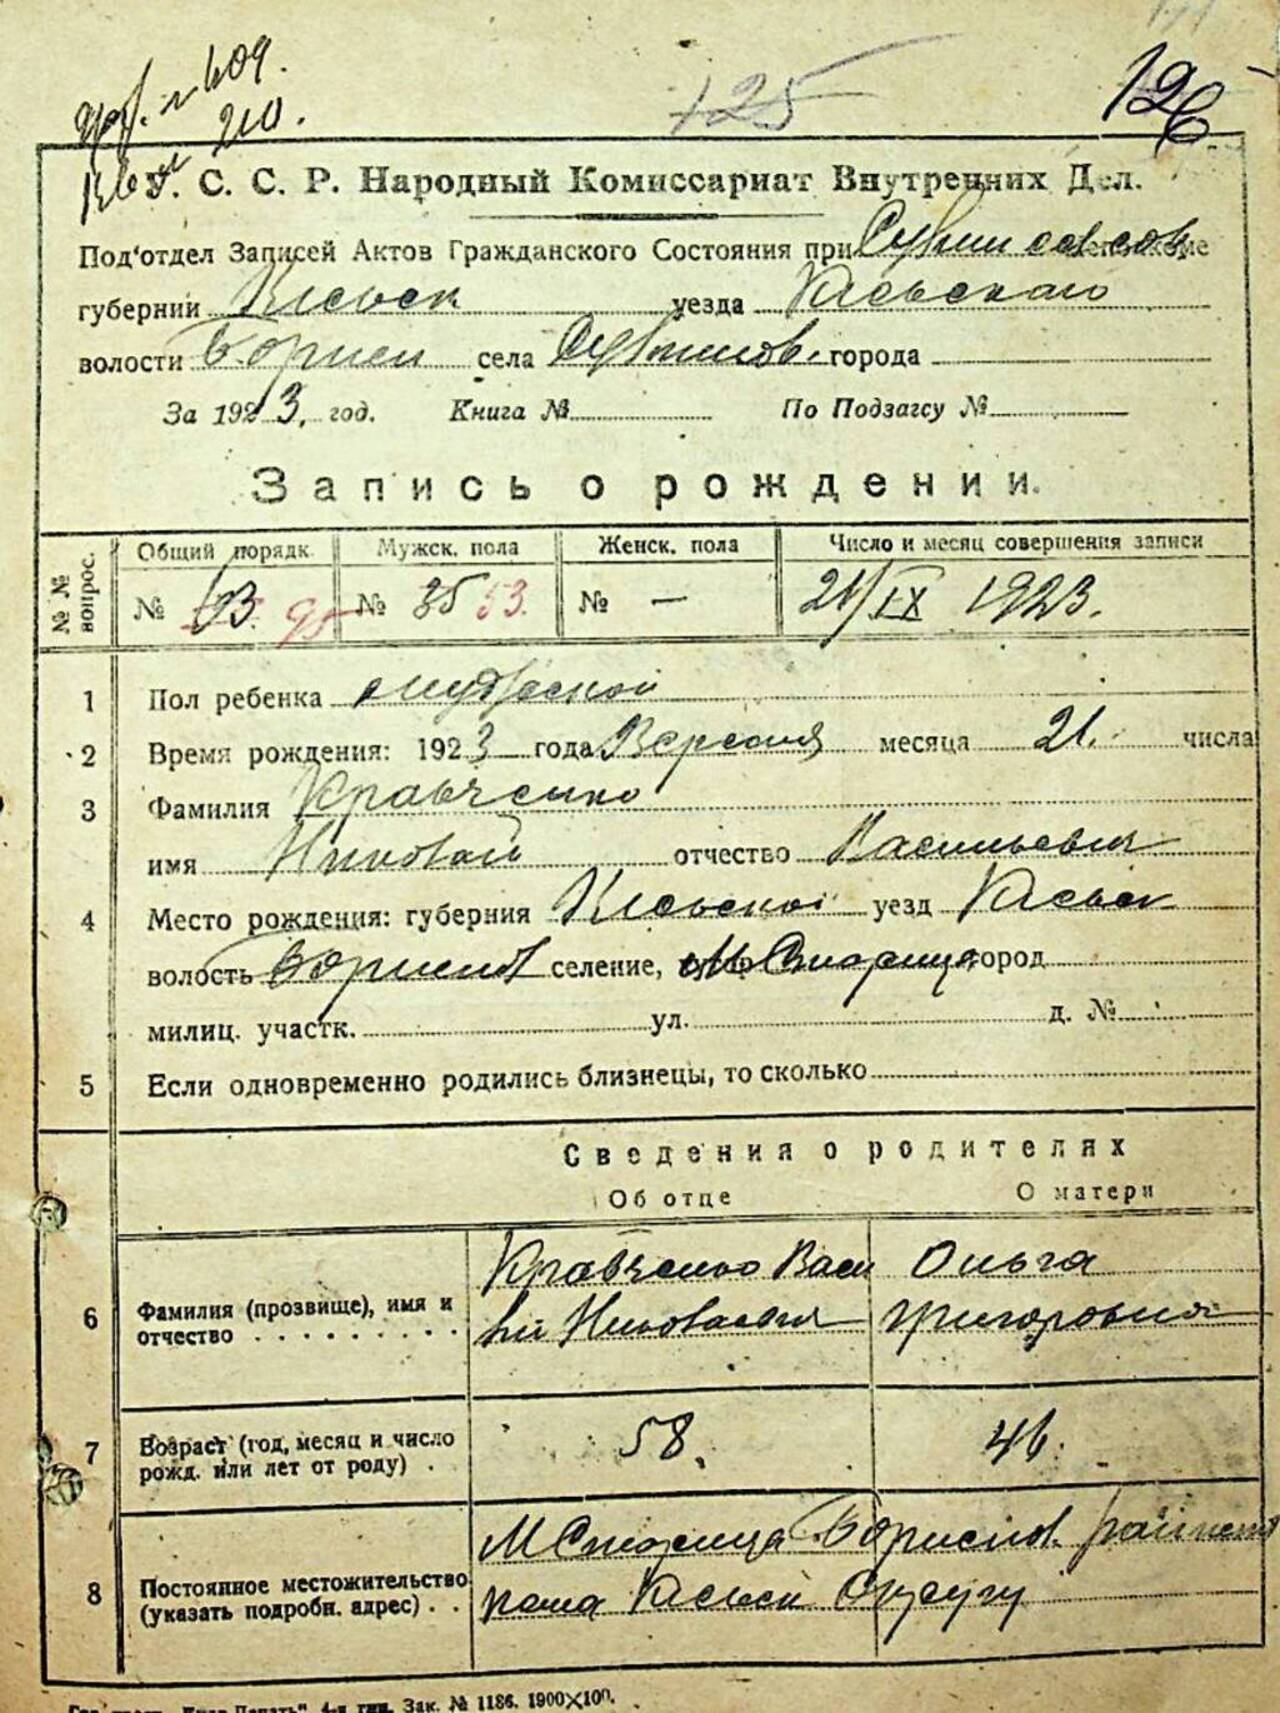 609.
210.
125
126
У. С. С. Р. Народный Комиссариат Внутренних Дел.
Под'отдел Записей Актов Гражданского Состояния при
губернии Київськ уезда Київського
волости Борисп села города
За 1923. год. Книга № По Подзагсу №
Запись о рождении.
№ № вопрос. Общий порядк. Мужск. пола Женск. пола Число и месяц совершения записи
№ 95 № 35 53. № — 21/IX 1923.
1 Пол ребенка
2 Время рождения: 1923 года Вересня месяца 21. числа
3 Фамилия Кравченко
имя Николай отчество Васильевич
4 Место рождения: губерния Київської уезд Київськ
волость селение, город
милиц. участк. ул. д. №
5 Если одновременно родились близнецы, то сколько
Сведения о родителях
Об отце О матери
Кравченко Васи Ольга
6 Фамилия (прозвище), имя и
отчество . . . . . . . . . . лий Николаевич Григоровна
7 Возраст (год, месяц и число
рожд. или лет от роду) . 58. 46.
М Стариця Борисп.
8 Постоянное местожительство
(указать подробн. адрес) . . Київськ Округу
Зак. № 1186. 1900×100.